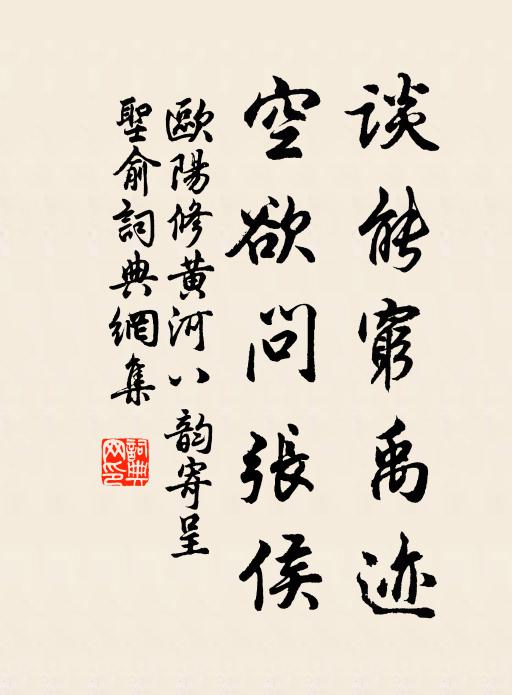 談能窮禹迹
空欲問張侯
歐陽修黄河八韵寄呈
聖俞詞典網集
詞典网印